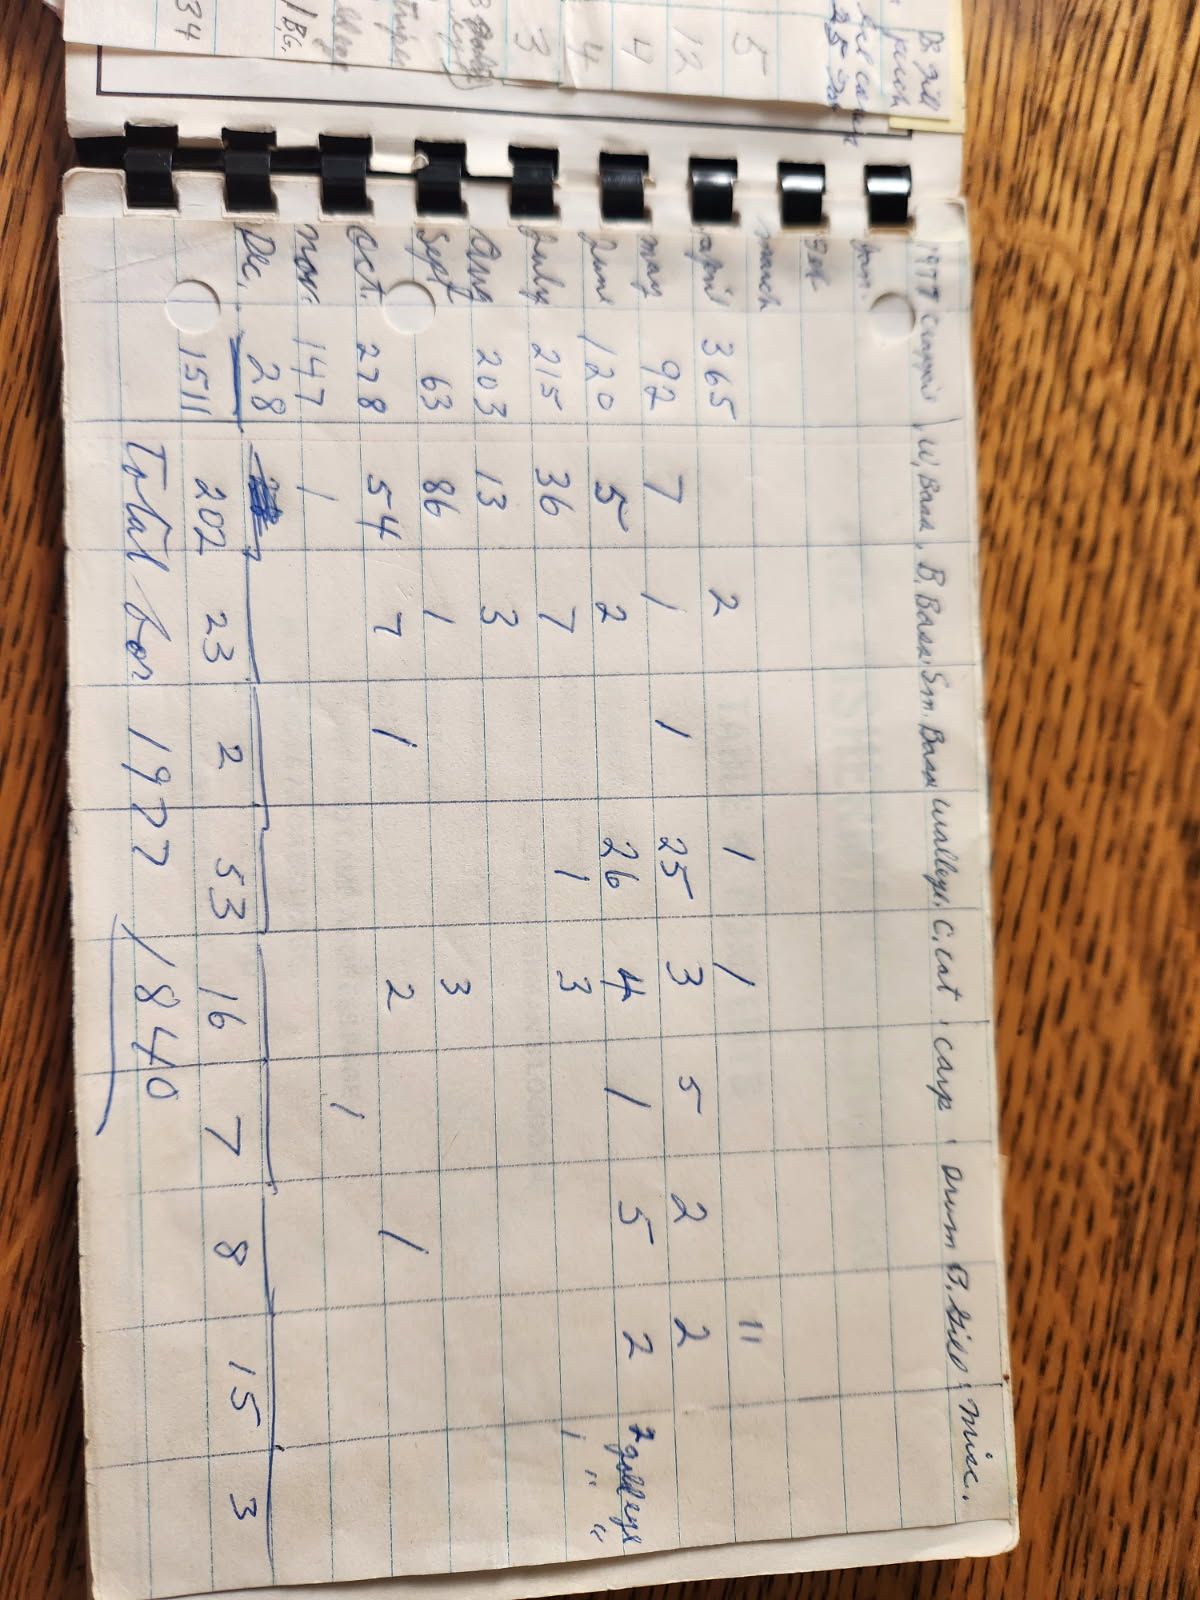 1977 Crappie W. Bass, B. Bass. Sm. Bass walleye. C. cat. carp. Drum B. Gill. misc.
Jan.
Feb
march
april 365 2 1 1 11
may 92 7 1 1 25 3 5 2 2
June 120 5 2 26 4 1 5 2 2 goldeye
July 215 36 7 1 3 1 " "
Aug 203 13 3
Sept 63 86 1 3
Oct. 278 54 7 1 2 1
Nov. 147 1 1
Dec. 28
1511 202 23 2 53 16 7 8 15 3
Total for 1977 1840
5
12
4
4
3
34